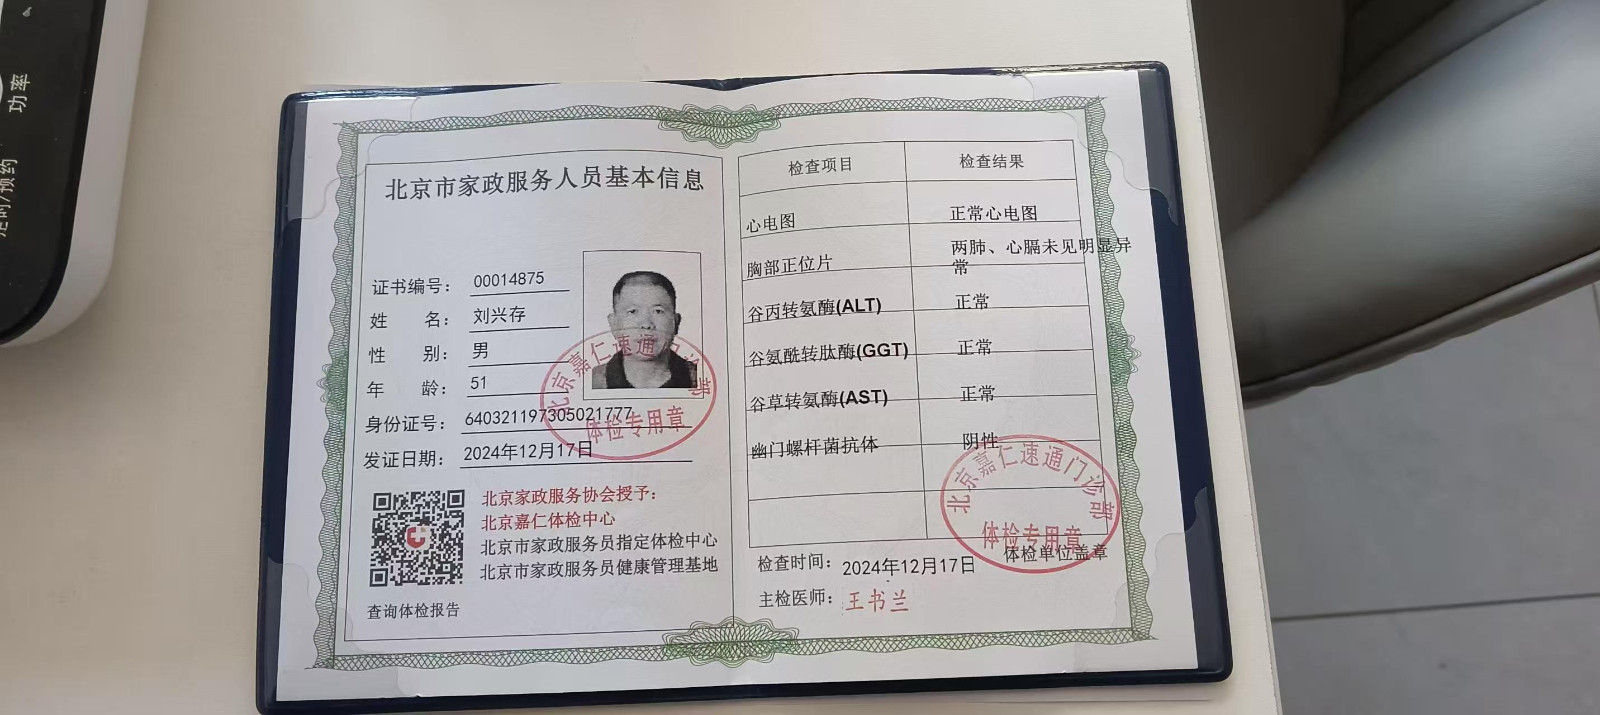 功率
定时/预约
北京市家政服务人员基本信息
证书编号： 00014875
姓 名： 刘兴存
性 别： 男
年 龄： 51
身份证号： 640321197305021777
发证日期： 2024年12月17日
北京嘉仁速通门诊部
体检专用章
北京家政服务协会授予：
北京嘉仁体检中心
北京市家政服务员指定体检中心
北京市家政服务员健康管理基地
查询体检报告
检查项目 检查结果
心电图 正常心电图
胸部正位片 两肺、心膈未见明显异
常
谷丙转氨酶(ALT) 正常
谷氨酰转肽酶(GGT) 正常
谷草转氨酶(AST) 正常
幽门螺杆菌抗体 阴性
北京嘉仁速通门诊部
体检专用章
体检单位盖章
检查时间： 2024年12月17日
主检医师： 王书兰